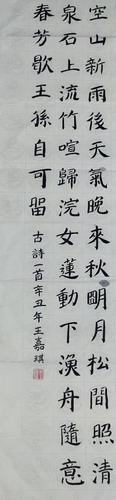 空山新雨後天氣晚來秋明月松間照清
泉石上流竹喧歸浣女蓮動下漁舟隨意
春芳歇王孫自可留
古詩一首辛丑年王嘉琪